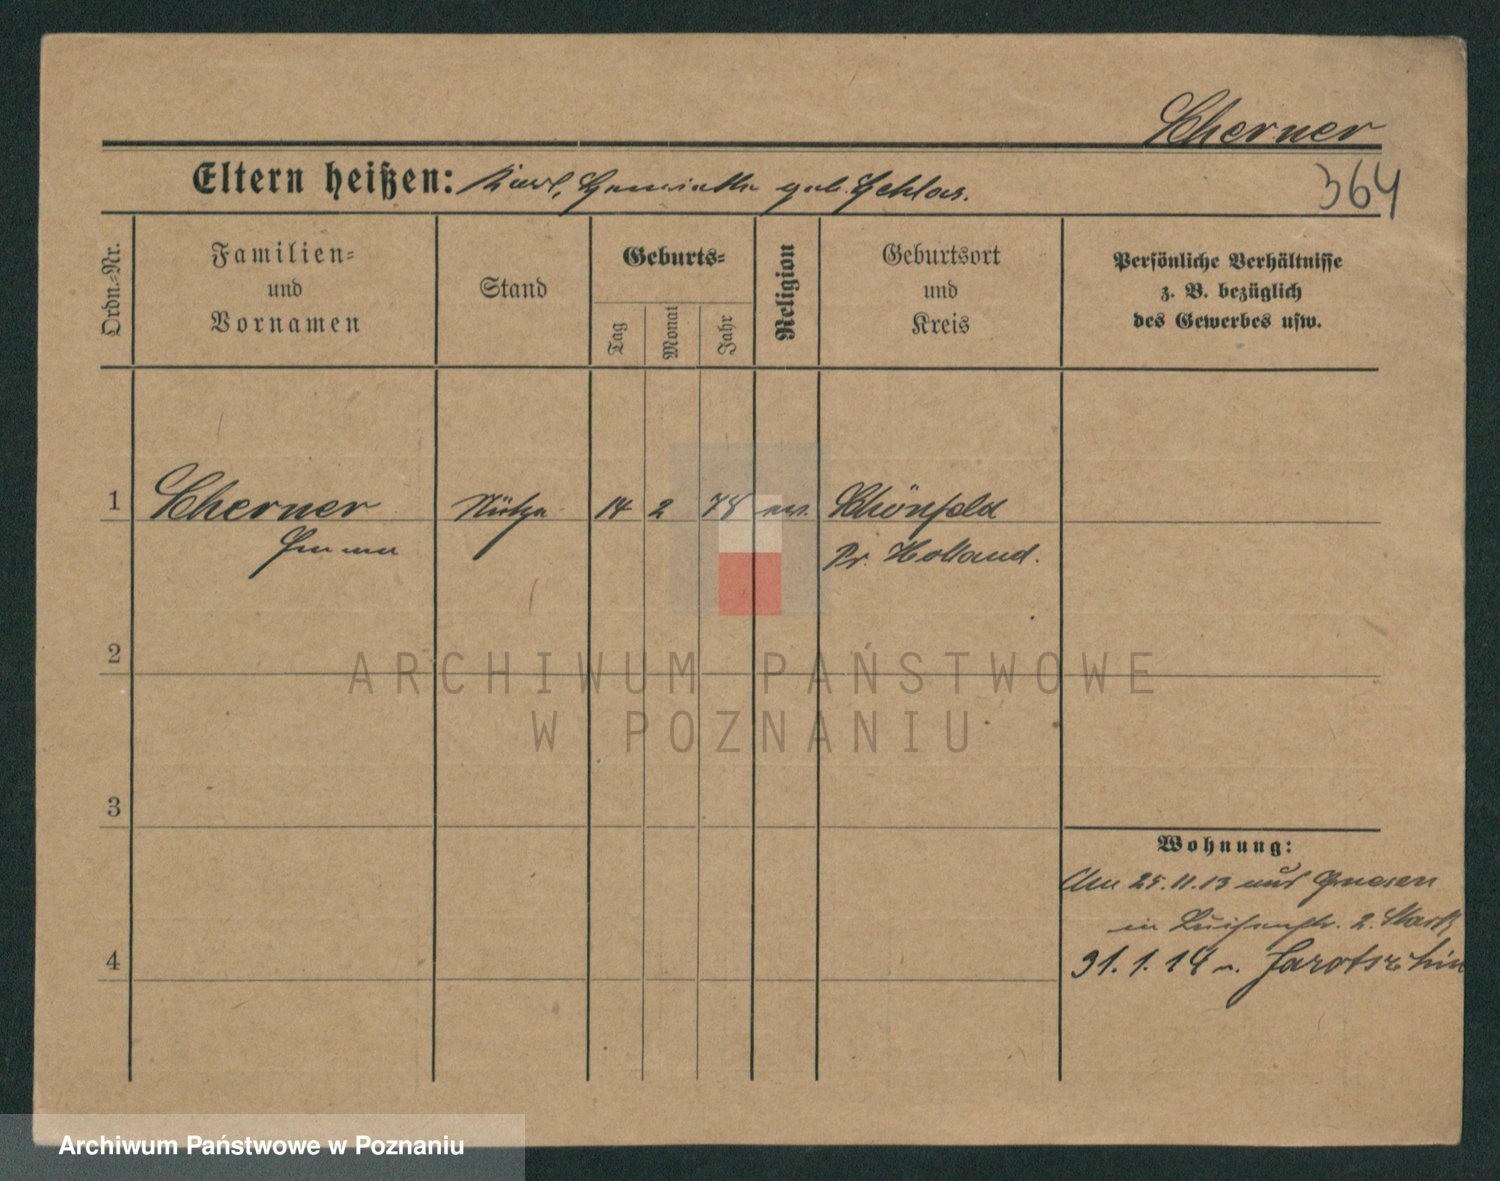 Scherner
Eltern heißen: Karl, Henriette geb. Schlas.
364
Ordn.-Nr.
Familien-
und
Vornamen
Stand
Geburts-
Tag
Monat
Jahr
Religion
Geburtsort
und
Kreis
Persönliche Verhältnisse
z. B. bezüglich
des Gewerbes usw.
1
Scherner
Emma
14 2 78 ev.
Schönfeld
Pr. Holland.
2
ARCHIWUM PAŃSTWOWE
W POZNANIU
3
Wohnung:
Am 25.11.13 aus Gnesen
in Luisenstr. 2. Stark
4
31.1.14 n. Jarotschin
Archiwum Państwowe w Poznaniu